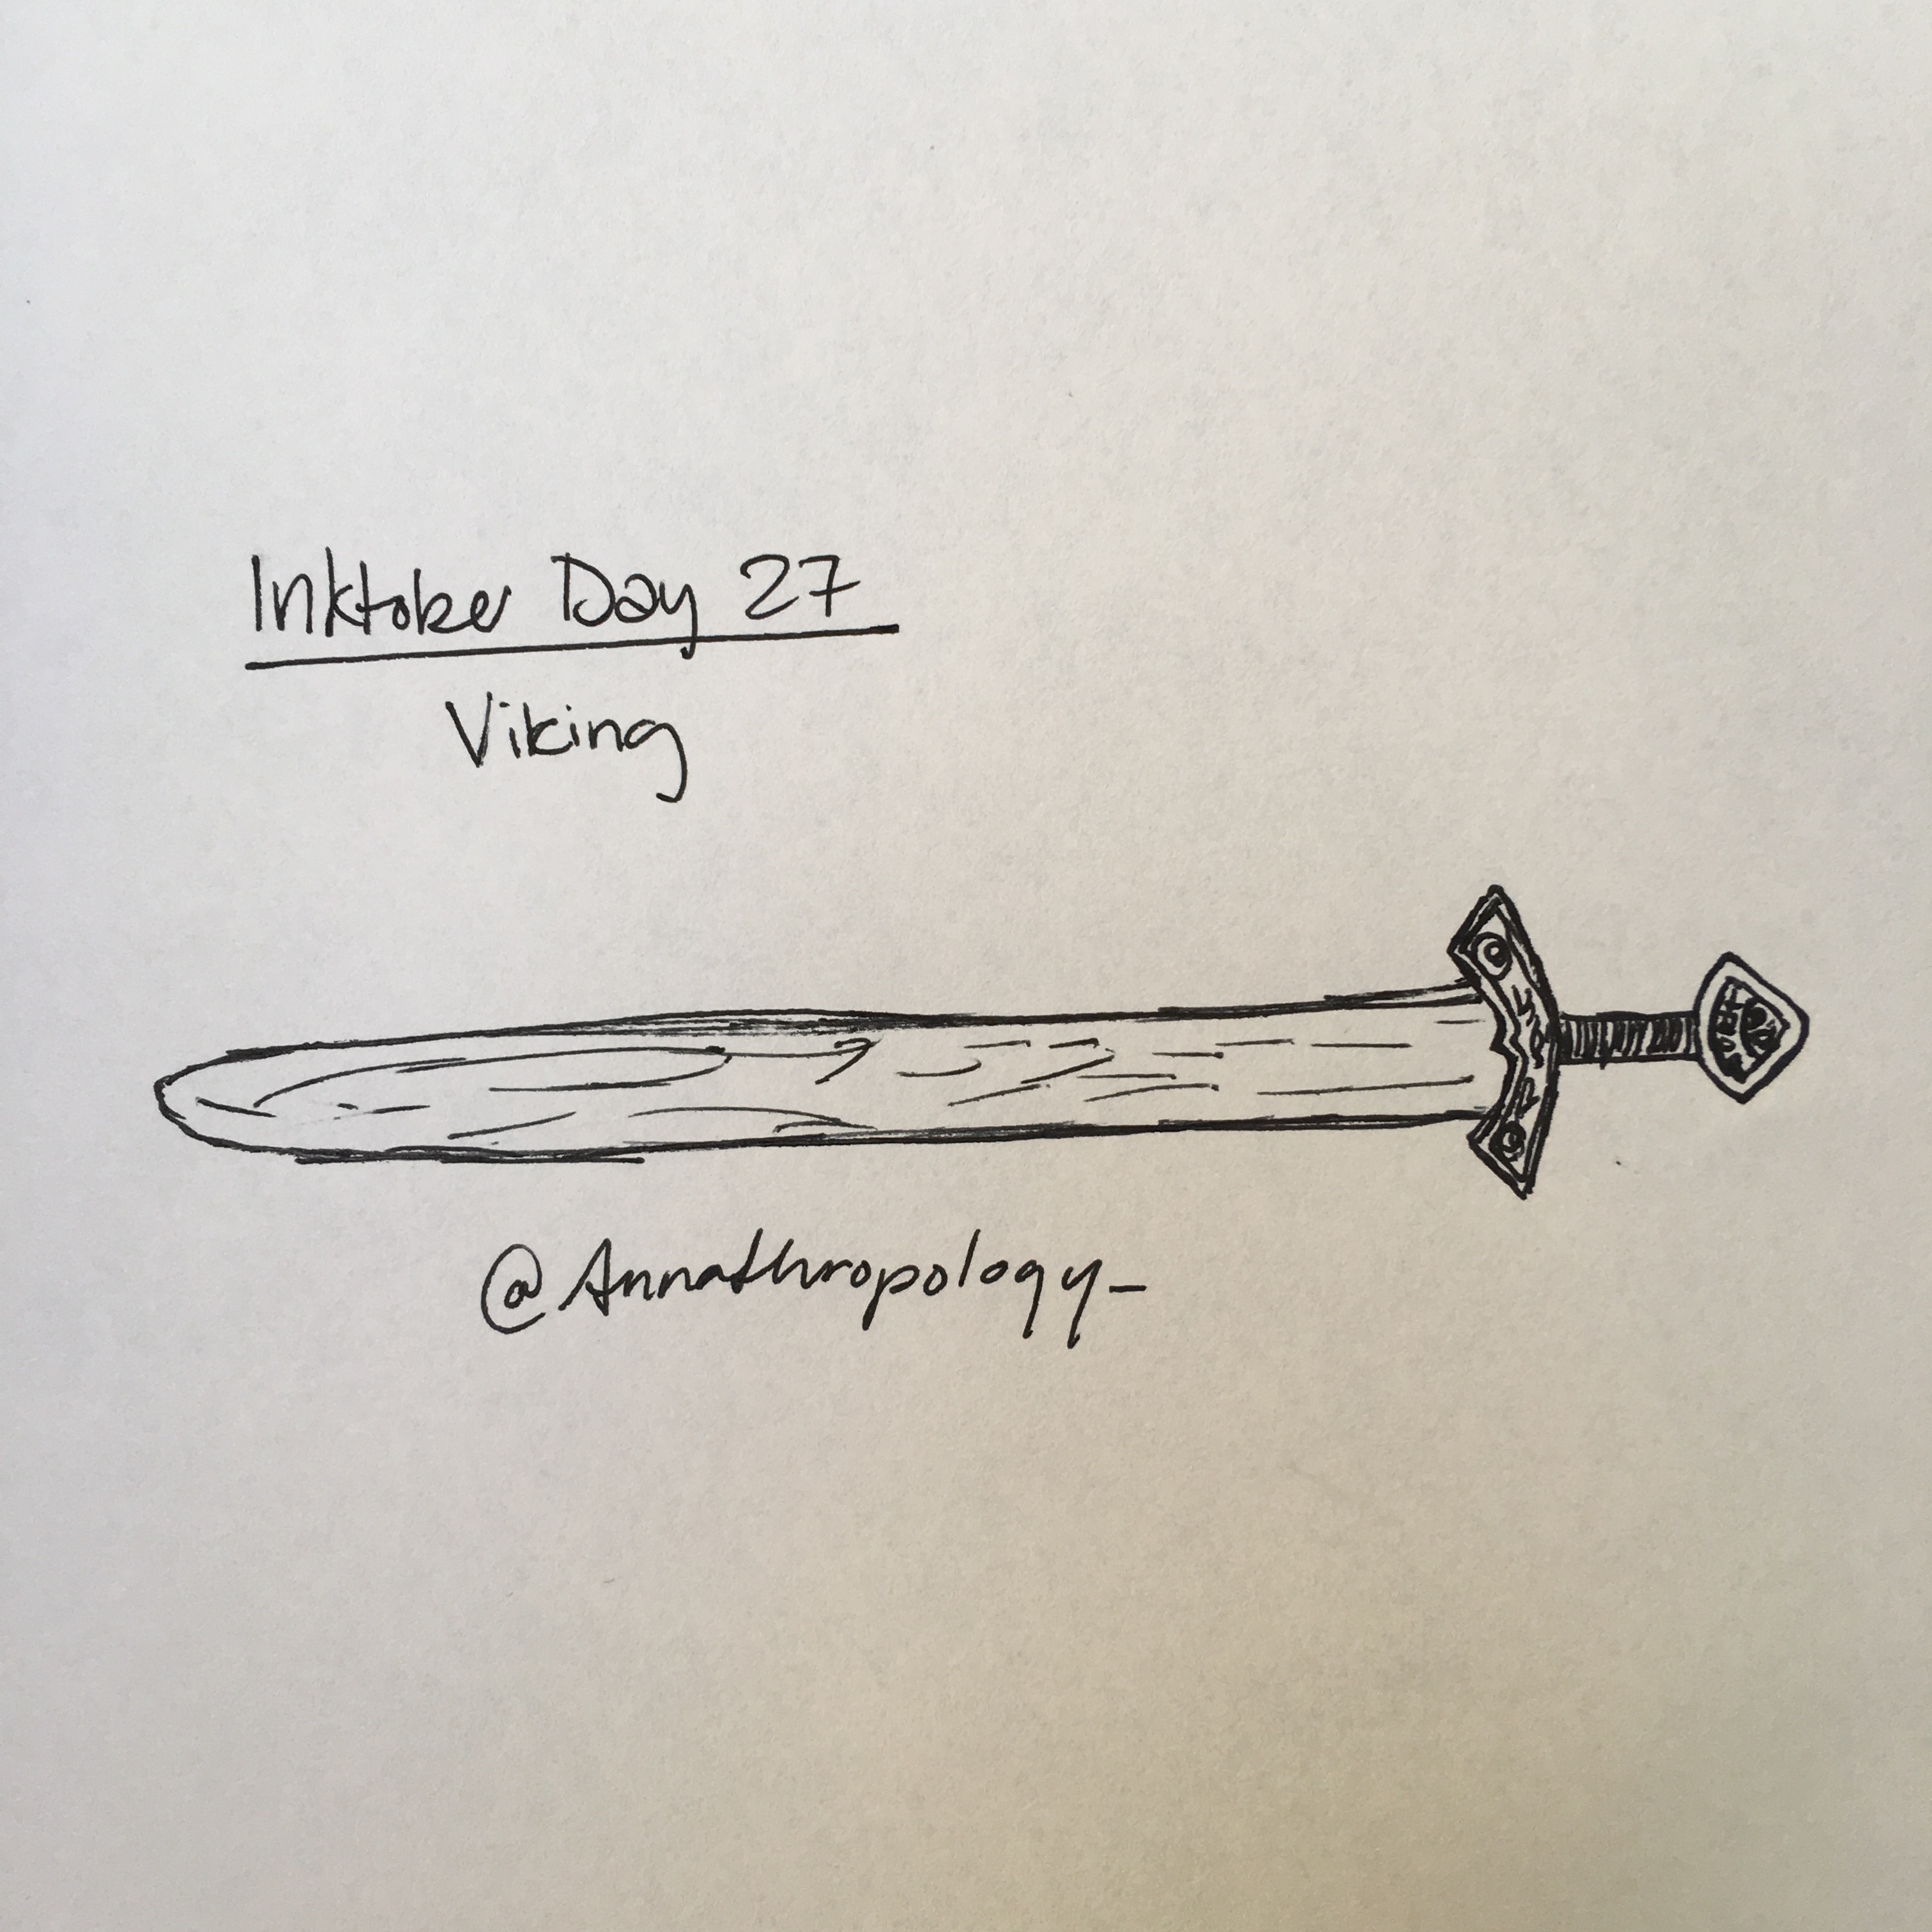 Inktober Day 27
Viking
@Annathropology_